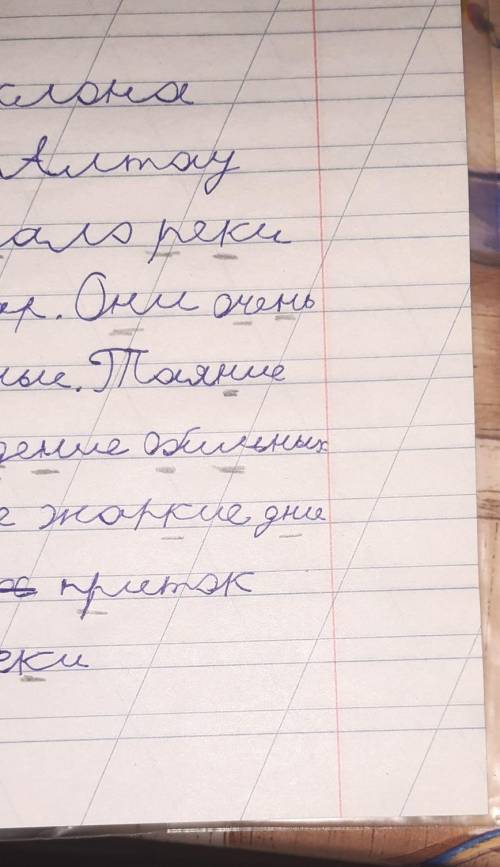 склона
Алтау
ало реки
ар. Они очень
ные. Таяние
дение обильных
е жаркие дни
приток
еки